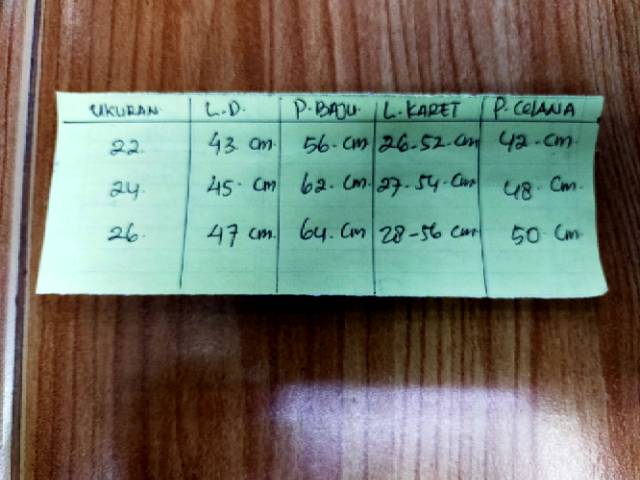 UKURAN L.D. P.BAJU L.KARET P.CELANA
22. 43 cm 56.cm 26-52.cm 42.cm
24. 45.cm 62.cm 27-54.cm 48.cm
26. 47 cm 64.cm 28-56 cm 50 cm